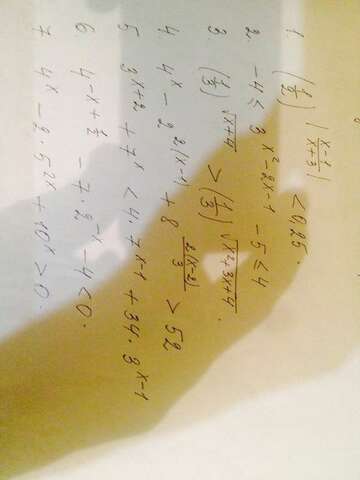 1. (1/2)^|x-1/x+3| < 0,25.
2. -4 ≤ 3^(x²-2x-1) - 5 < 4
3 (1/3)^√(x+4) > (1/3)^√(x²+3x+4).
4. 4^x - 2^(2(x-1)) + 8^(2(x-2)/3) > 52
5 3^(x+2) + 7^x < 4·7^(x-1) + 34·3^(x-1)
6. 4^(-x+1/2) - 7·2^(-x) - 4 < 0.
7. 4^x - 2·5^(2x) + 10^x > 0.